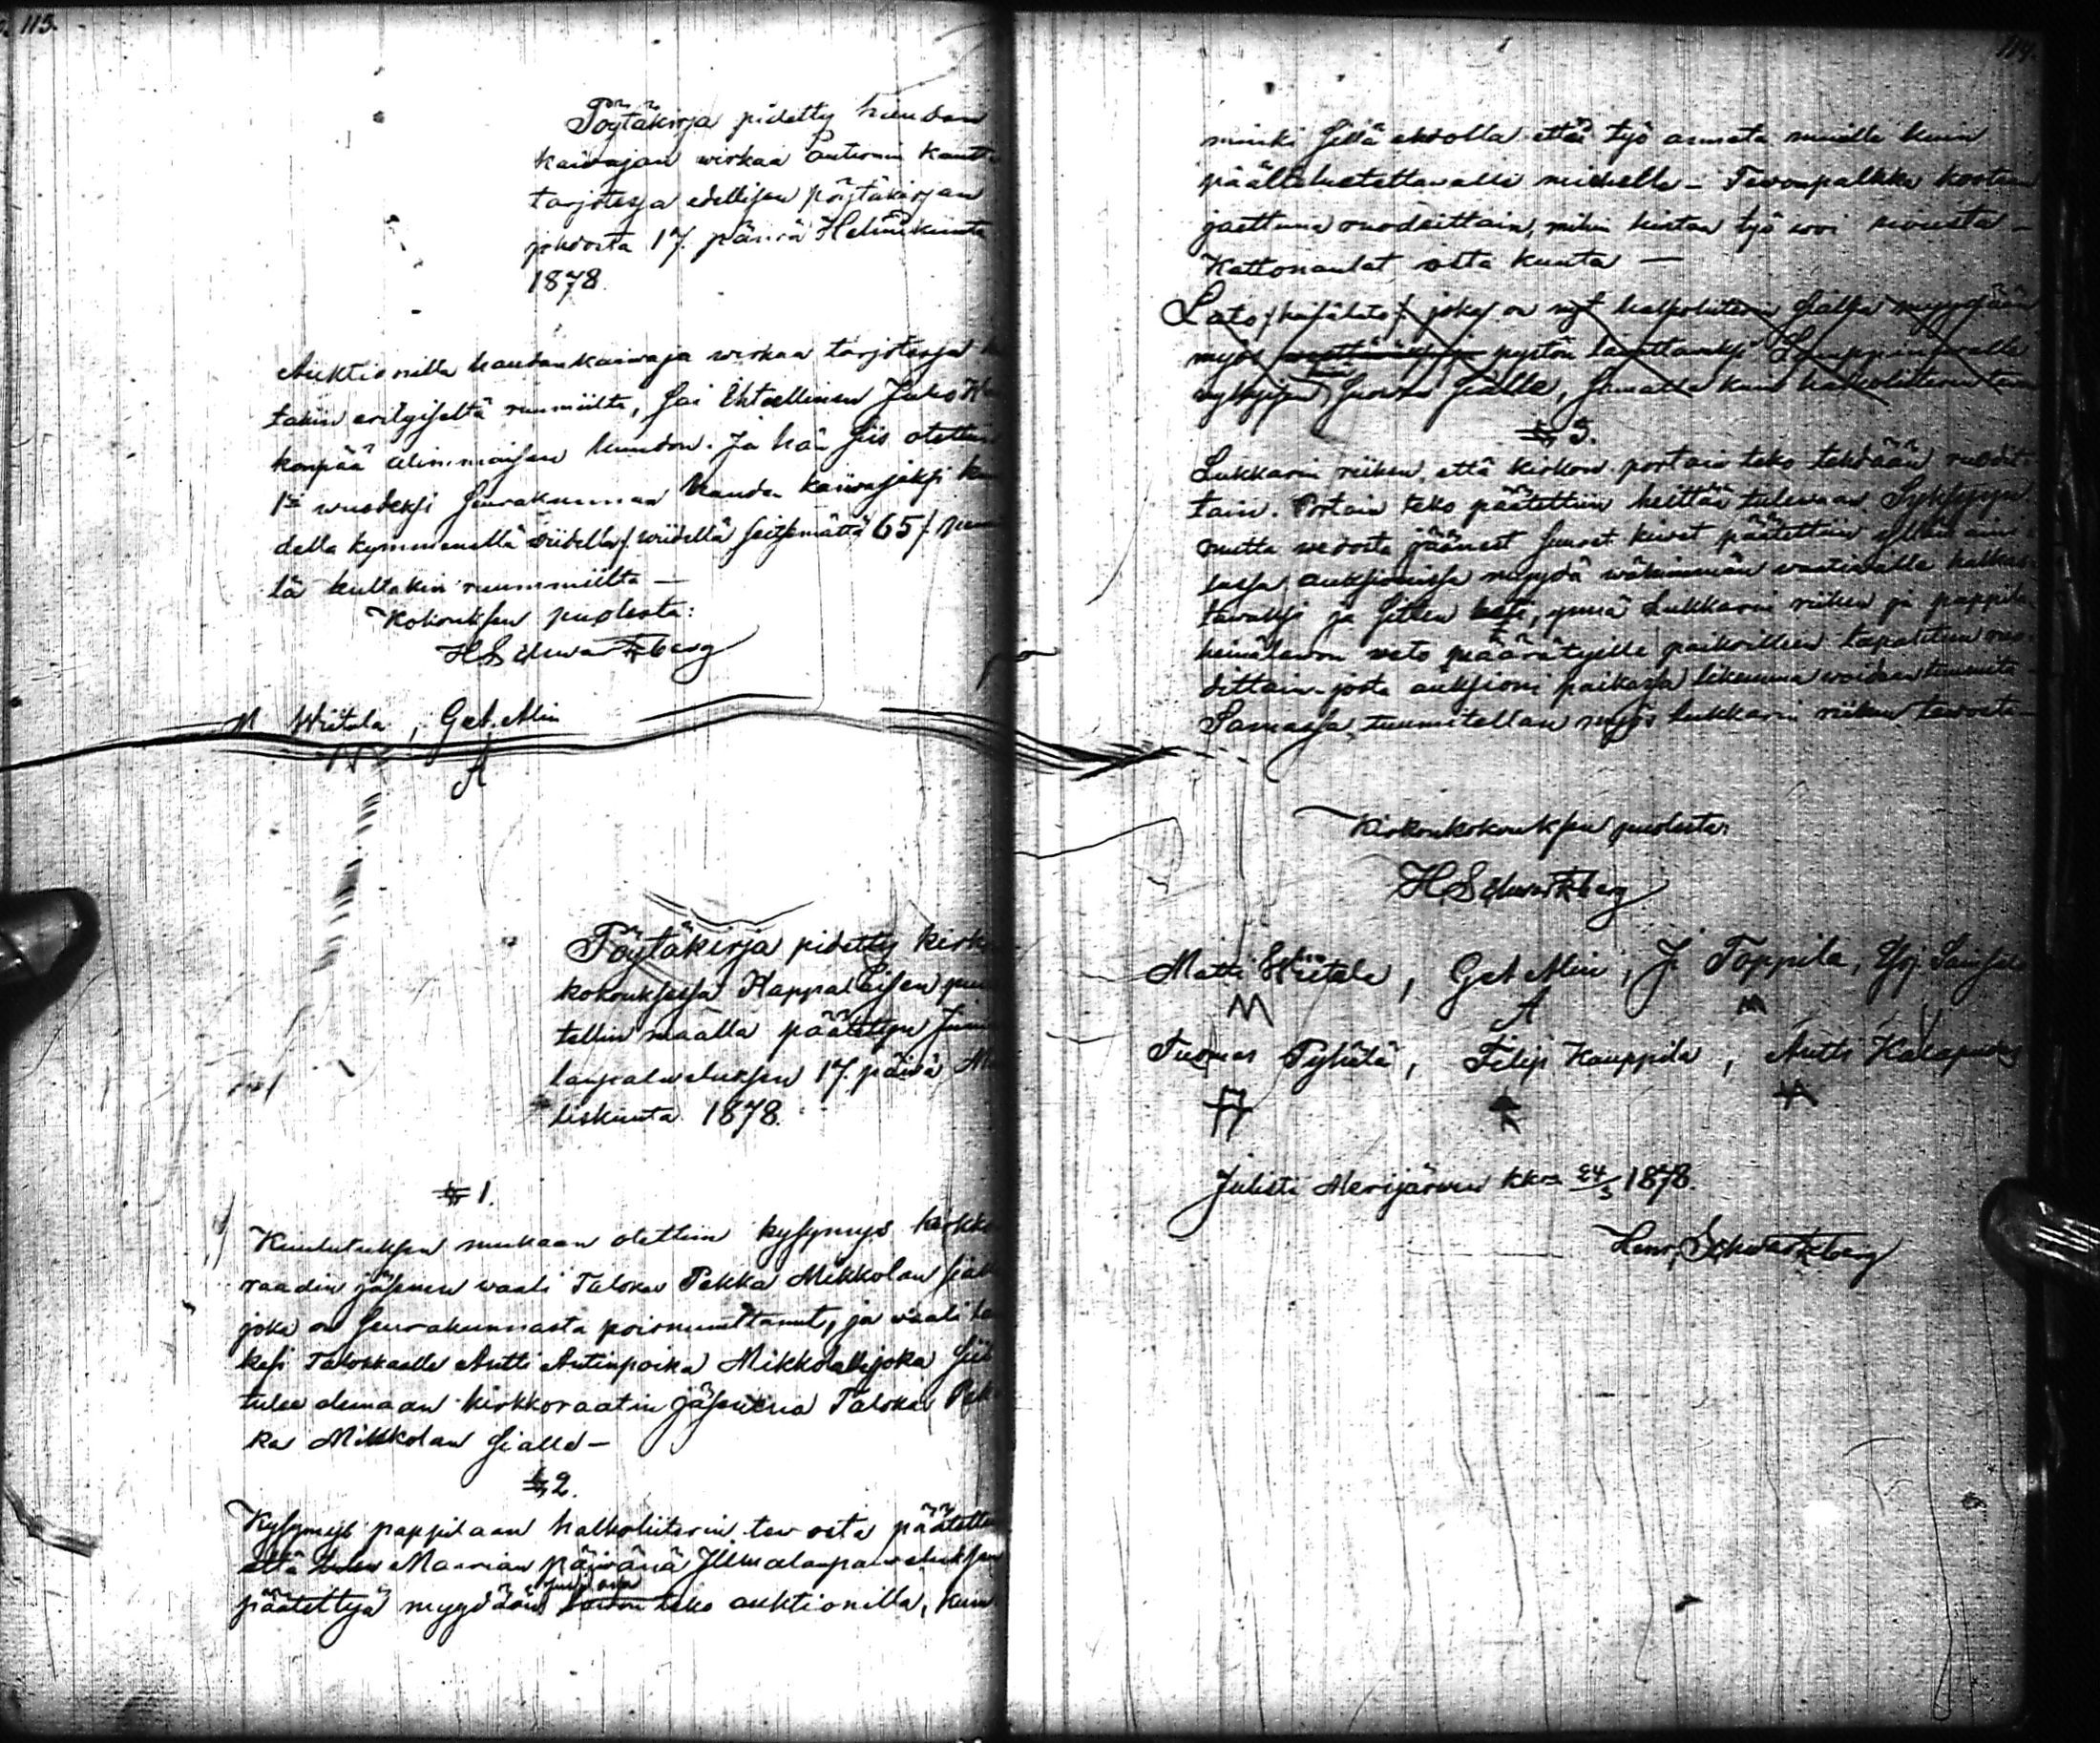 113.
Pöytäkirja pidetty haudan
kaiwajan wirkaa
tarjotessa edellisen pöytäkirjan
johdosta 17. päiwä Helmikuuta
1878.
Auktionilla haudankaiwaja wirkaa tarjotessa
takin erityiseltä ruumiilta, sai Ehtoollinen Juho
konpää alimmaisen huudon. Ja hän siis otettiin
1si wuodeksi seurakunnan haudan kaiwajaksi
della kymmenellä wiidellä / wiidellä seitsemättä 65 /
tä kultakin ruummiilta —
Kokouksen puolesta:
HSchwartzberg
M Wiitala, Gab. Alin
A
Pöytäkirja pidetty kirk
kokouksessa Kappalaisen
tellin maalla päätetyn Jum
lanpalweluksen 17. päiwä Ma
liskuuta 1878.
§ 1.
Kuulutuksen mukaan otettiin kysymys kirkko
raadin jäsenen waali Talokas Pekka Mikkolan sia
joka on seurakunnasta poismuuttanut, ja waali
kesi Talokkaalle Antti Antinpoika Mikkolalle joka sii
tulee olemaan kirkkoraatin jäsenenä Talokas Pek
ka Mikkolan sialla —
§ 2.
Kysymys pappilaan halkoliiterin teosta päätettiin
että Maarian päiwänä Jumalanpalweluksen
päätettyä myydään teko auktionilla, kun
114.
minki sillä ehdolla että työ anneta muille kuin
päälleluotettawalle miehelle – Tewonpalkka kootaan
jaettuna ruodeittain, mihin hintaa työ woi nousta –
Kattonaulat osta kunta —
Lato / heinälato / joka on nyt halkoliiterin sialla myydään
myös pystön
sialle, samalla kun halkoliiterin
§ 3.
Lukkarin riihen, että kirkon portain teko tehdään ruodit-
tain. Portain teko päätettiin heittää tulewaan Syksyyn
mutta wedosta jääneet suuret kiwet päätettiin
sassa auksionissa myydä wähimmän waatiwalle halkas-
tawaksi ja sitten weto, ynnä Lukkarin riihen ja pappila
heinäladon weto määrätyille paikoilleen tapahtuu ruo-
dittain – josta auksioni paikassa likemmä woidaan tuumita –
Samassa tuumitellaan myös lukkarin riihen tewosta
Kirkonkokouksen puolesta:
HSchwartzberg
Matti Wiitala, Gab Alin, J. Toppila,
M A M
Tuomas Pyhälä, Filip Kauppila, Antti Kalapudas
Julisti Merijärwen kkossa 24/3 1878.
Henr. Schwartzberg